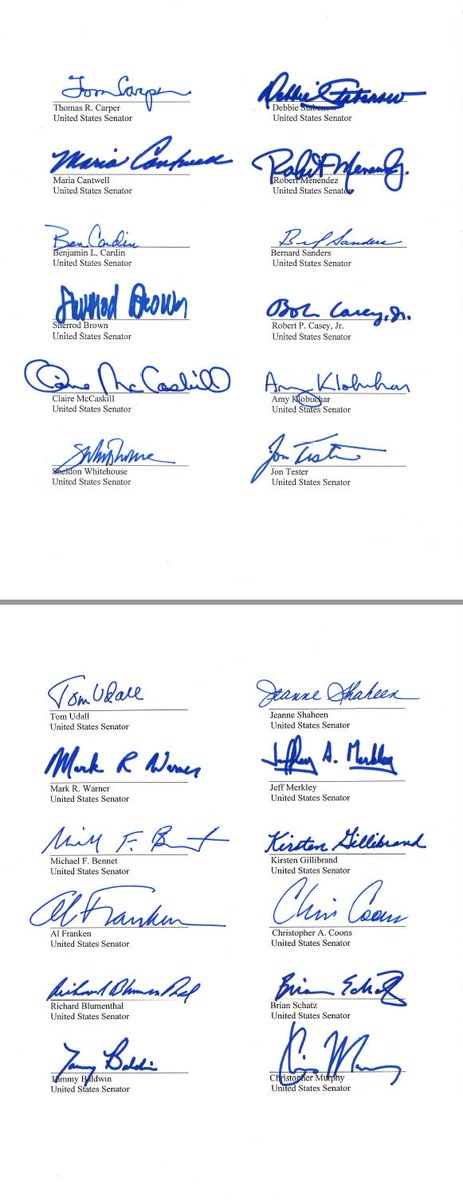 Tom Carper
Thomas R. Carper
United States Senator
Debbie Stabenow
Debbie Stabenow
United States Senator
Maria Cantwell
Maria Cantwell
United States Senator
Robert Menendez
Robert Menendez
United States Senator
Ben Cardin
Benjamin L. Cardin
United States Senator
Sanders
Bernard Sanders
United States Senator
Sherrod Brown
Sherrod Brown
United States Senator
Bob Casey, Jr.
Robert P. Casey, Jr.
United States Senator
Claire McCaskill
Claire McCaskill
United States Senator
Amy Klobuchar
Amy Klobuchar
United States Senator
Sheldon Whitehouse
United States Senator
Jon Tester
Jon Tester
United States Senator
Tom Udall
Tom Udall
United States Senator
Jeanne Shaheen
Jeanne Shaheen
United States Senator
Mark R Warner
Mark R. Warner
United States Senator
Jeffrey A. Merkley
Jeff Merkley
United States Senator
Michael F. Bennet
United States Senator
Kirsten Gillibrand
Kirsten Gillibrand
United States Senator
Al Franken
Al Franken
United States Senator
Chris Coons
Christopher A. Coons
United States Senator
Richard Blumenthal
Richard Blumenthal
United States Senator
Brian Schatz
Brian Schatz
United States Senator
Tammy Baldwin
Tammy Baldwin
United States Senator
Chris Murphy
Christopher Murphy
United States Senator